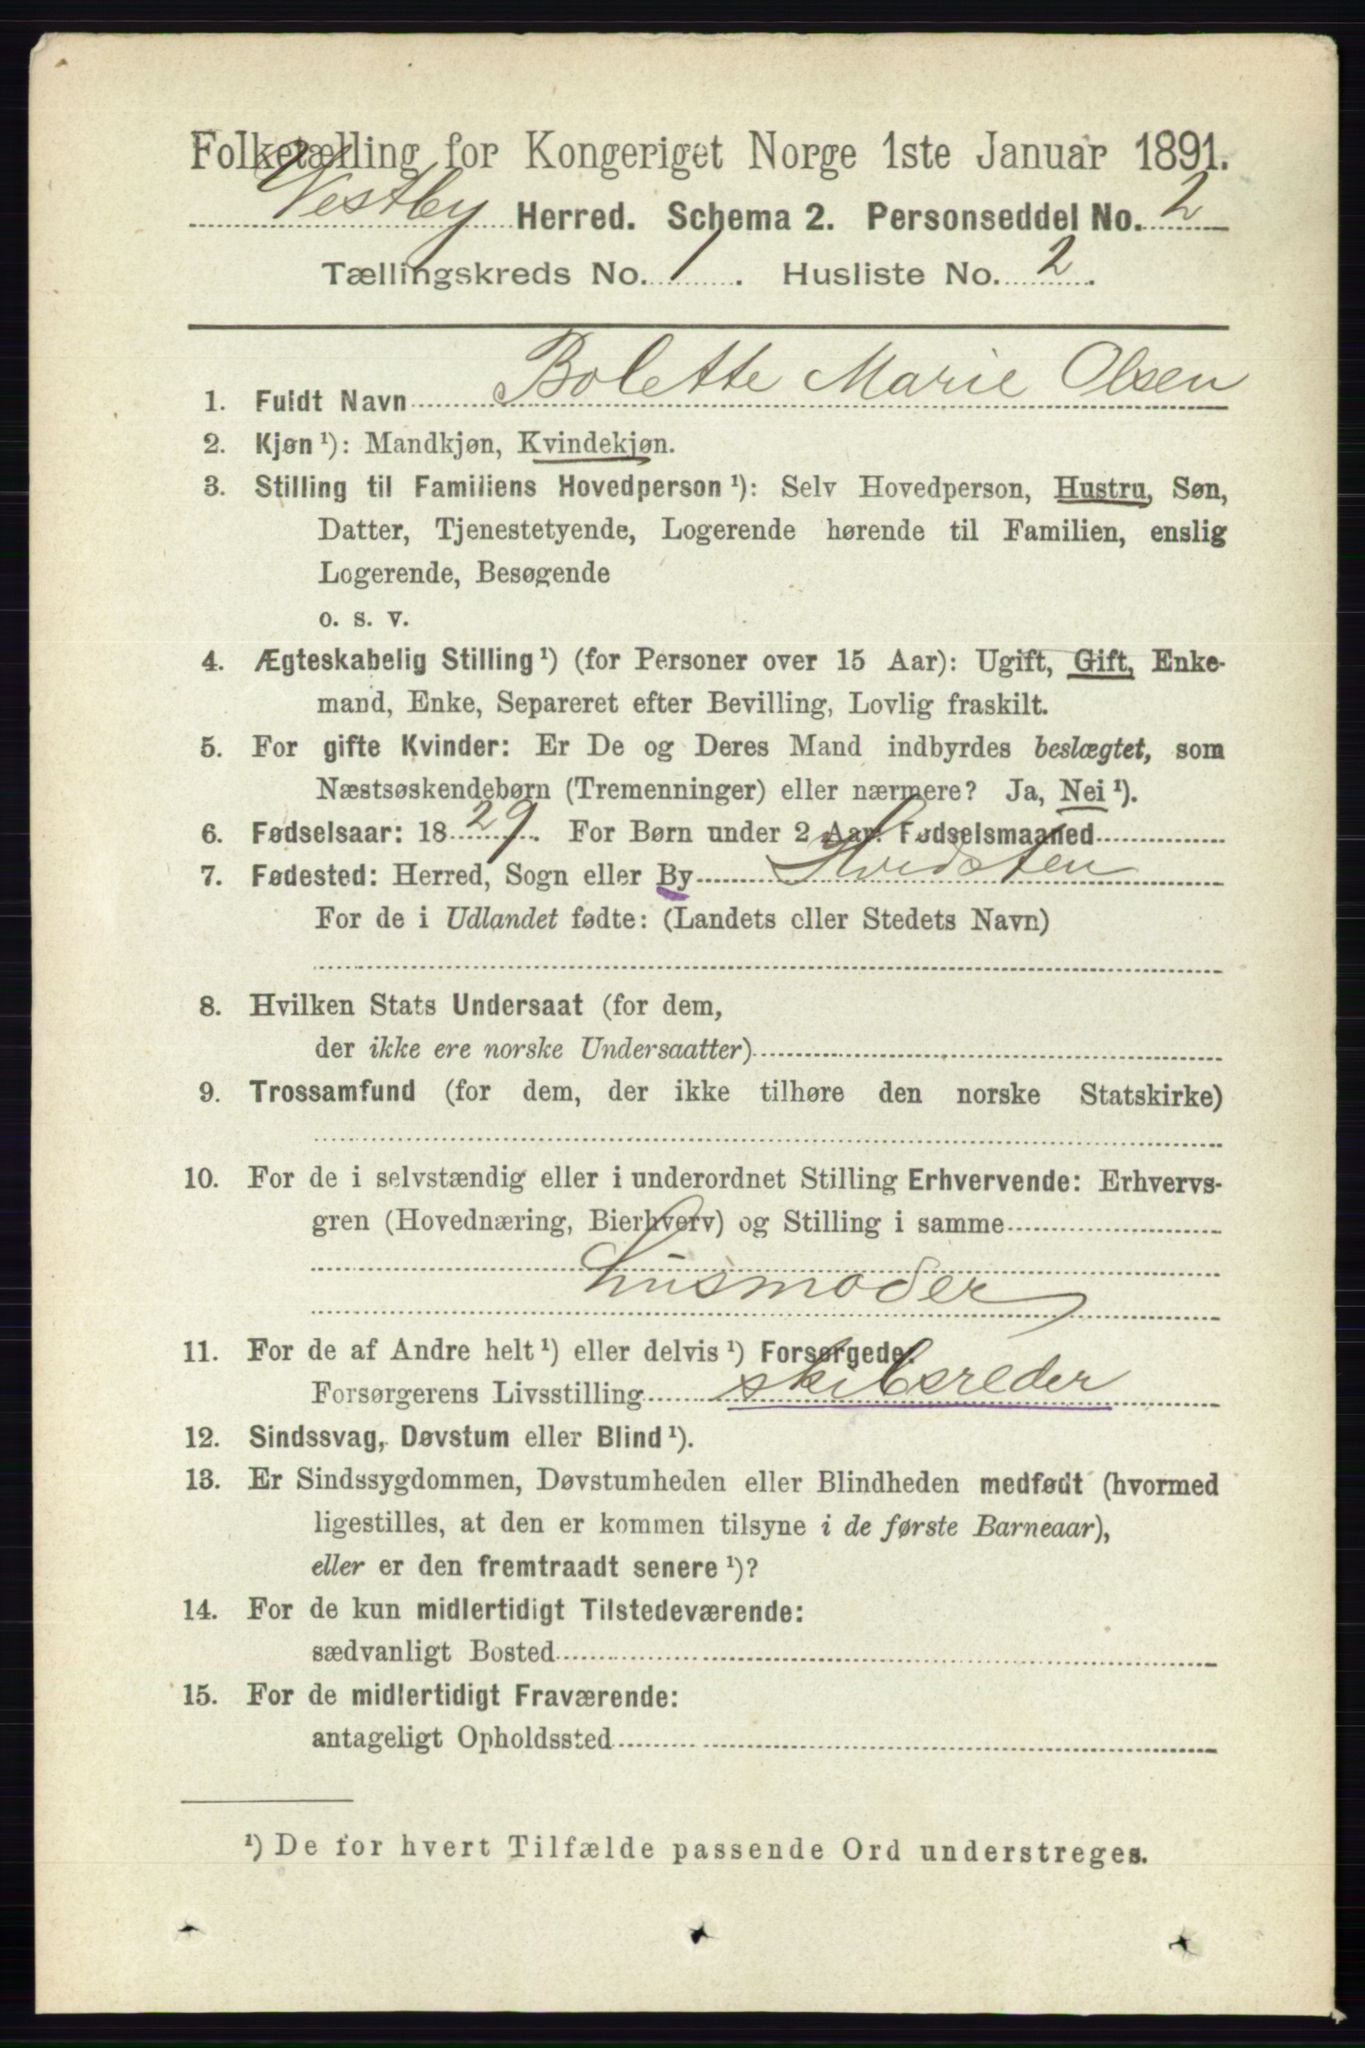 Folketælling for Kongeriget Norge 1ste Januar 1891.
Vestby Herred. Schema 2. Personseddel No. 2
Tællingskreds No. 1. Husliste No. 2.
1. Fuldt Navn Bolette Marie Olsen
2. Kjøn ¹): Mandkjøn, Kvindekjøn.
3. Stilling til Familiens Hovedperson ¹): Selv Hovedperson, Hustru, Søn,
Datter, Tjenestetyende, Logerende hørende til Familien, enslig
Logerende, Besøgende
o. s. v.
4. Ægteskabelig Stilling ¹) (for Personer over 15 Aar): Ugift, Gift, Enke-
mand, Enke, Separeret efter Bevilling, Lovlig fraskilt.
5. For gifte Kvinder: Er De og Deres Mand indbyrdes beslægtet, som
Næstsøskendebørn (Tremenninger) eller nærmere? Ja, Nei ¹).
6. Fødselsaar: 1829. For Børn under 2 Aar: Fødselsmaaned
7. Fødested: Herred, Sogn eller By Hvidsten
For de i Udlandet fødte: (Landets eller Stedets Navn)
8. Hvilken Stats Undersaat (for dem,
der ikke ere norske Undersaatter)
9. Trossamfund (for dem, der ikke tilhøre den norske Statskirke)
10. For de i selvstændig eller i underordnet Stilling Erhvervende: Erhvervs-
gren (Hovednæring, Bierhverv) og Stilling i samme
husmoder
11. For de af Andre helt ¹) eller delvis ¹) Forsørgede:
Forsørgerens Livsstilling skibsreder
12. Sindssvag, Døvstum eller Blind ¹).
13. Er Sindssygdommen, Døvstumheden eller Blindheden medfødt (hvormed
ligestilles, at den er kommen tilsyne i de første Barneaar),
eller er den fremtraadt senere ¹)?
14. For de kun midlertidigt Tilstedeværende:
sædvanligt Bosted
15. For de midlertidigt Fraværende:
antageligt Opholdssted
¹) De for hvert Tilfælde passende Ord understreges.